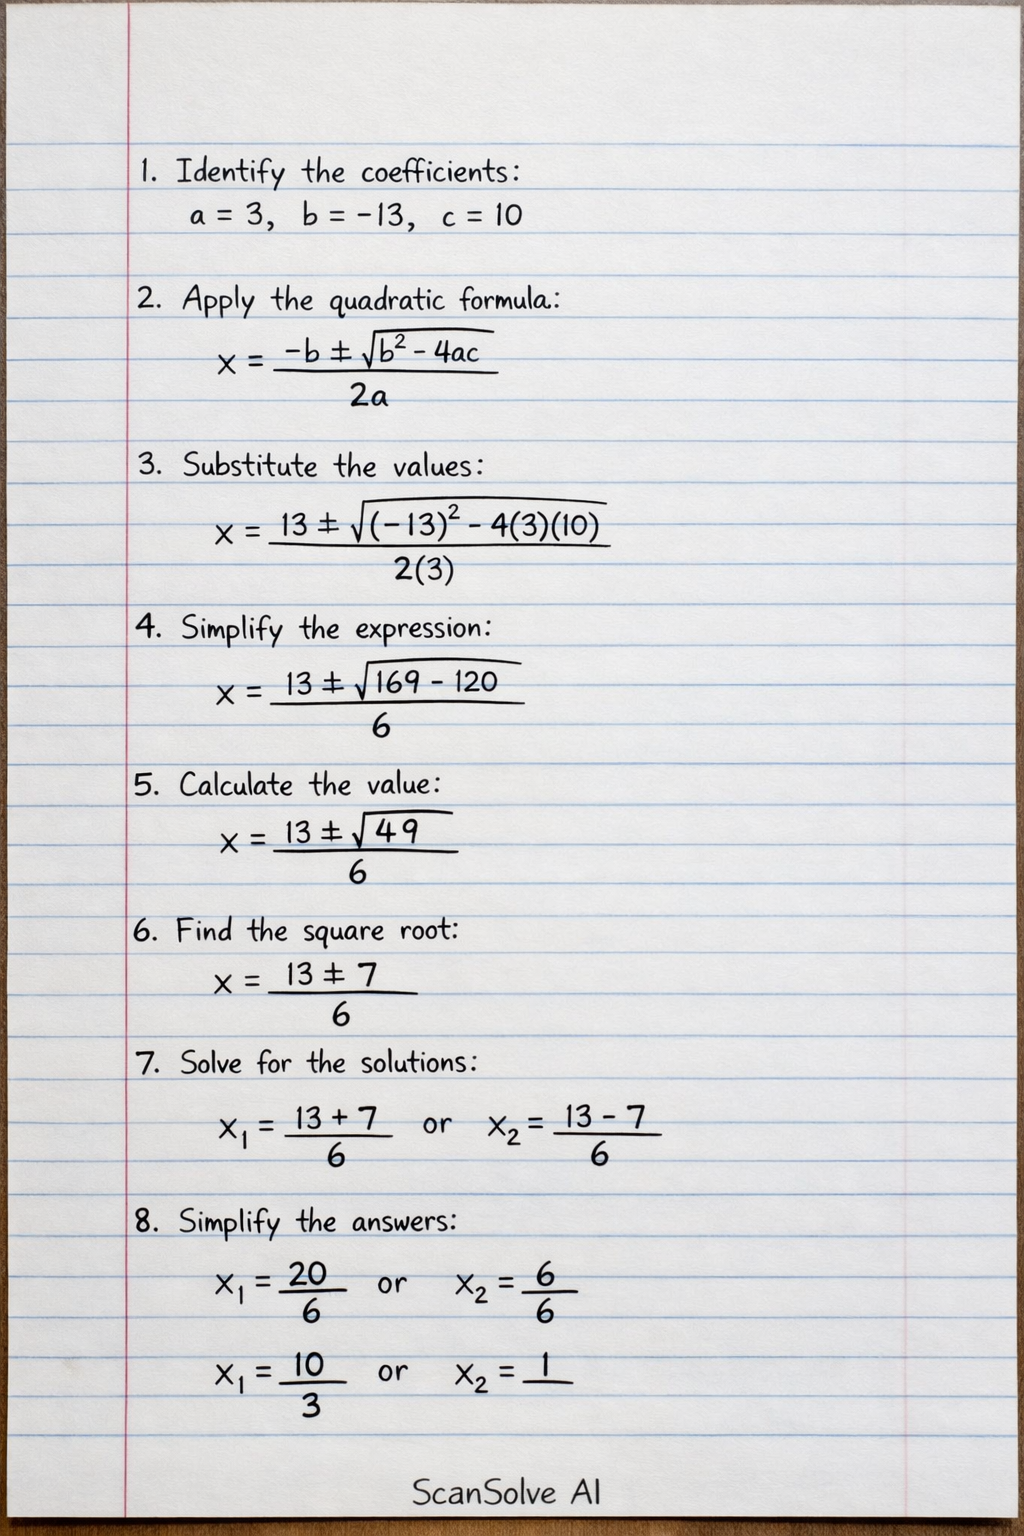 1. Identify the coefficients:
a = 3, b = -13, c = 10
2. Apply the quadratic formula:
x = (-b ± √(b² - 4ac)) / 2a
3. Substitute the values:
x = (13 ± √((-13)² - 4(3)(10))) / 2(3)
4. Simplify the expression:
x = (13 ± √(169 - 120)) / 6
5. Calculate the value:
x = (13 ± √49) / 6
6. Find the square root:
x = (13 ± 7) / 6
7. Solve for the solutions:
x₁ = (13 + 7) / 6 or x₂ = (13 - 7) / 6
8. Simplify the answers:
x₁ = 20/6 or x₂ = 6/6
x₁ = 10/3 or x₂ = 1
ScanSolve AI